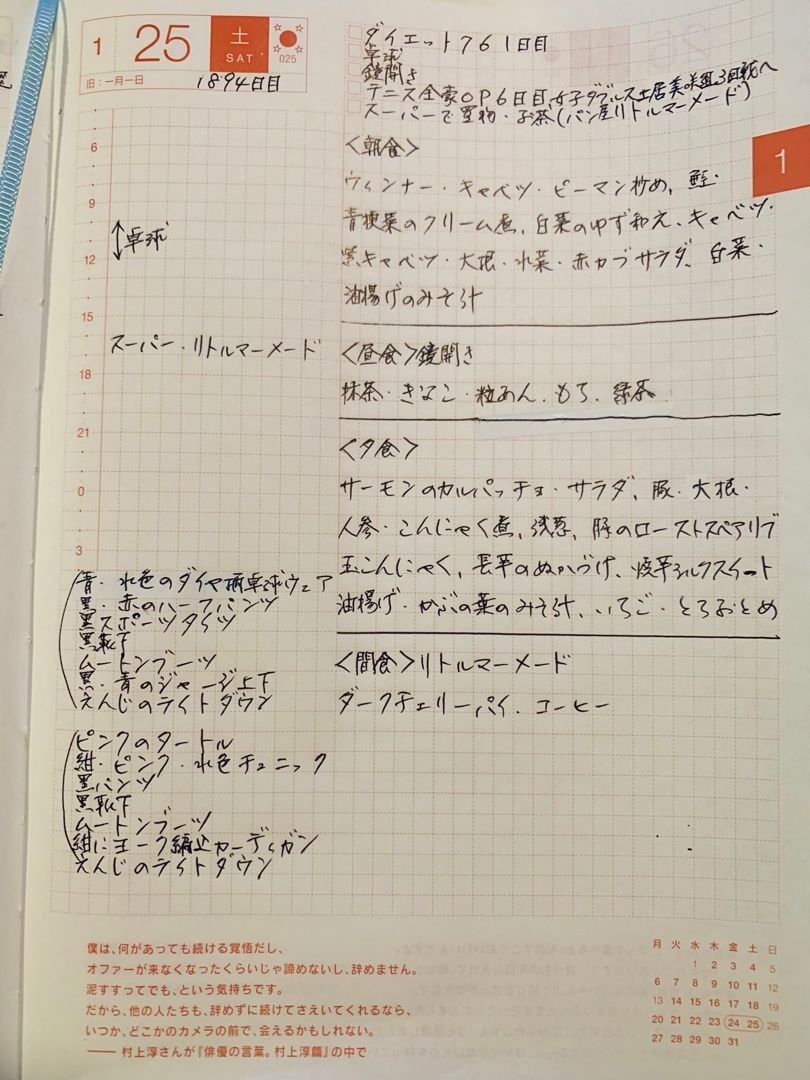 1
25
土
SAT
025
旧:一月一日
1894日目
ダイエット761日目
卓球
鏡開き
テニス全豪OP6日目、女子ダブルス土居美咲組3回戦へ
スーパーで買物・お茶(パン屋リトルマーメード)
1
6
9
↕卓球
12
15
スーパー・リトルマーメード
18
21
0
3
<朝食>
ウィンナー・キャベツ・ピーマン炒め、鮭・
青梗菜のクリーム煮、白菜のゆず和え、キャベツ・
紫キャベツ・大根・水菜・赤カブサラダ、白菜・
油揚げのみそ汁
<昼食>鏡開き
抹茶・きなこ・粒あん、もち、緑茶
<夕食>
サーモンのカルパッチョ・サラダ、豚・大根・
人参・こんにゃく煮、浅葱、豚のローストスペアリブ
玉こんにゃく、長芋のぬかづけ、焼芋シルクスイート
油揚げ・かぶの葉のみそ汁、いちご・とちおとめ
<間食>リトルマーメード
ダークチェリーパイ、コーヒー
青・水色のダイヤ柄卓球ウェア
黒・赤のハーフパンツ
黒スポーツタイツ
黒靴下
ムートンブーツ
黒・青のジャージ上下
えんじのライトダウン
ピンクのタートル
紺・ピンク・水色チュニック
黒パンツ
黒靴下
ムートンブーツ
紺にヨーク編込カーディガン
えんじのライトダウン
僕は、何があっても続ける覚悟だし、
オファーが来なくなったくらいじゃ諦めないし、辞めません。
泥すすってでも、という気持ちです。
だから、他の人たちも、辞めずに続けてさえいてくれるなら、
いつか、どこかのカメラの前で、会えるかもしれない。
―― 村上淳さんが『俳優の言葉。村上淳篇』の中で
月 火 水 木 金 土 日
1 2 3 4 5
6 7 8 9 10 11 12
13 14 15 16 17 18 19
20 21 22 23 24 25 26
27 28 29 30 31